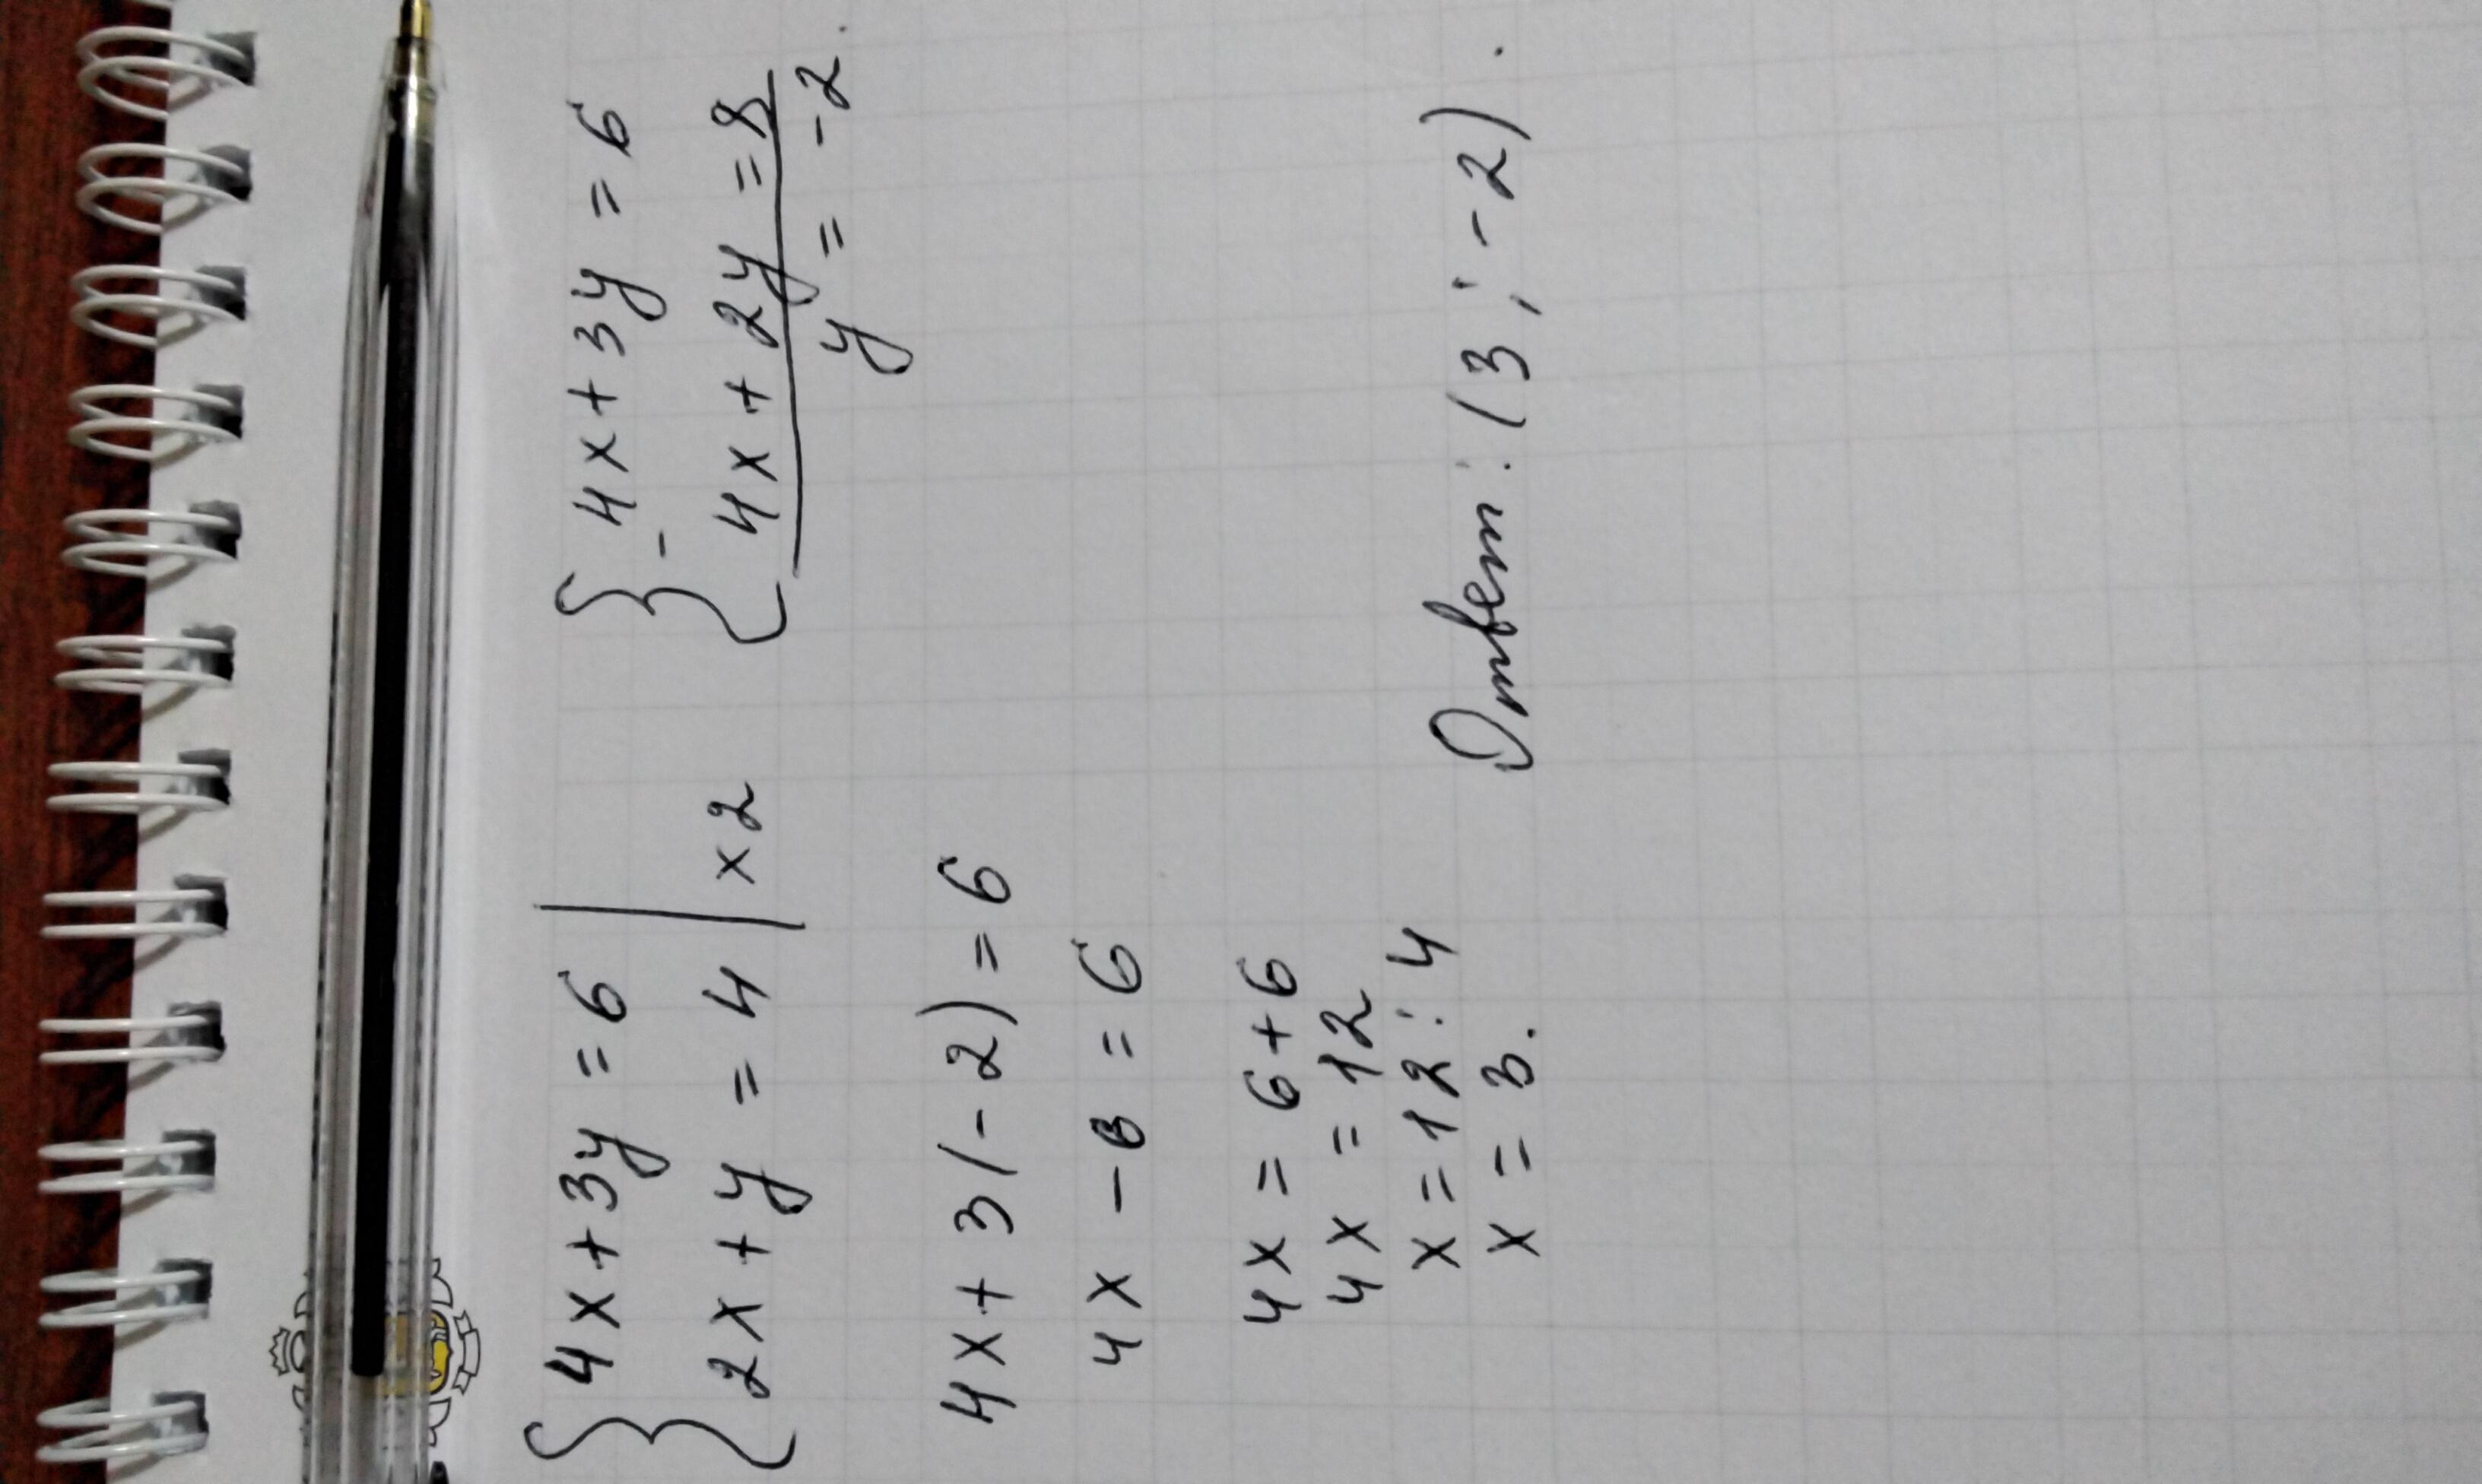 { 4x + 3y = 6 | { 4x + 3y = 6
{ 2x + y = 4 | x2 - { 4x + 2y = 8
y = -2.
4x + 3(-2) = 6
4x - 6 = 6
4x = 6 + 6
4x = 12
x = 12 : 4
x = 3.
Ответ: (3 ; -2).